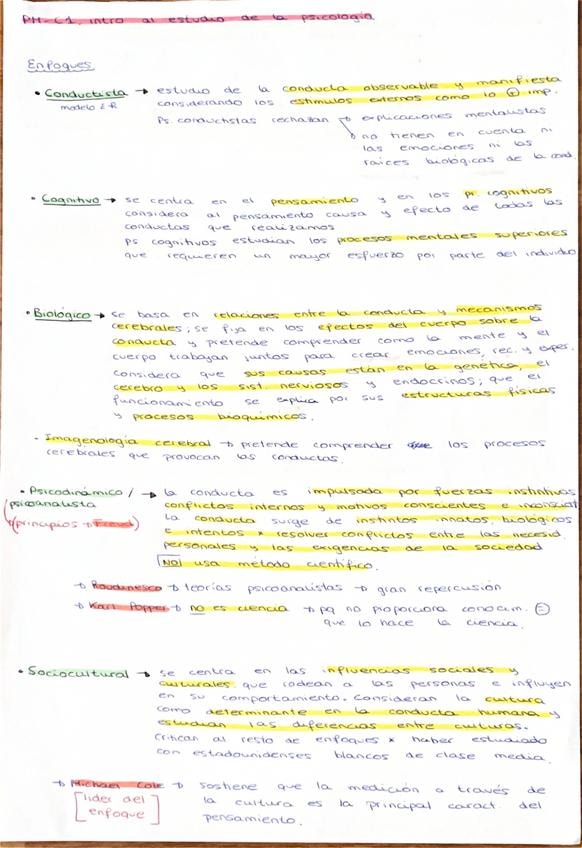 PH-C1. intro al estudio de la psicología
Enfoques
• Conductista → estudio de la conducta observable y manifiesta
modelo E-R considerando los estímulos externos como lo ⊕ imp.
Ps. conductistas rechazan → explicaciones mentalistas
→ no tienen en cuenta ni
las emociones ni las
raíces biológicas de la cond.
• Cognitivo → se centra en el pensamiento y en los pr. cognitivos
considera al pensamiento causa y efecto de todas las
conductas que realizamos
Ps cognitivos estudian los procesos mentales superiores
que requieren un mayor esfuerzo por parte del individuo
• Biológico → se basa en relaciones entre la conducta y mecanismos
cerebrales; se fija en los efectos del cuerpo sobre la
conducta y pretende comprender como la mente y el
cuerpo trabajan juntos para crear emociones, rec. y exper.
considera que sus causas están en la genética, el
cerebro y los sist. nerviosos y endocrinos; que el
funcionamiento se explica por sus estructuras físicas
y procesos bioquímicos.
- Imagenología cerebral → pretende comprender los procesos
cerebrales que provocan las conductas.
• Psicodinámico / → la conducta es impulsada por fuerzas instintivas
psicoanalista conflictos internos y motivos conscientes e inconscient
(principios → Freud) La conducta surge de instintos innatos, biológicos
e intentos x resolver conflictos entre las necesid.
personales y las exigencias de la sociedad
NO usa método científico.
→ Roudinesco → teorías psicoanalistas → gran repercusión
→ Karl Popper → no es ciencia → pq no proporciona conocim. =
que lo hace la ciencia.
• Sociocultural → se centra en las influencias sociales y
culturales que rodean a las personas e influyen
en su comportamiento. Consideran la cultura
como determinante en la conducta humana y
estudian las diferencias entre culturas.
Critican al resto de enfoques x haber estudiado
con estadounidenses blancos de clase media.
→ Michael Cole → sostiene que la medición a través de
[líder del la cultura es la principal caract. del
enfoque] pensamiento.